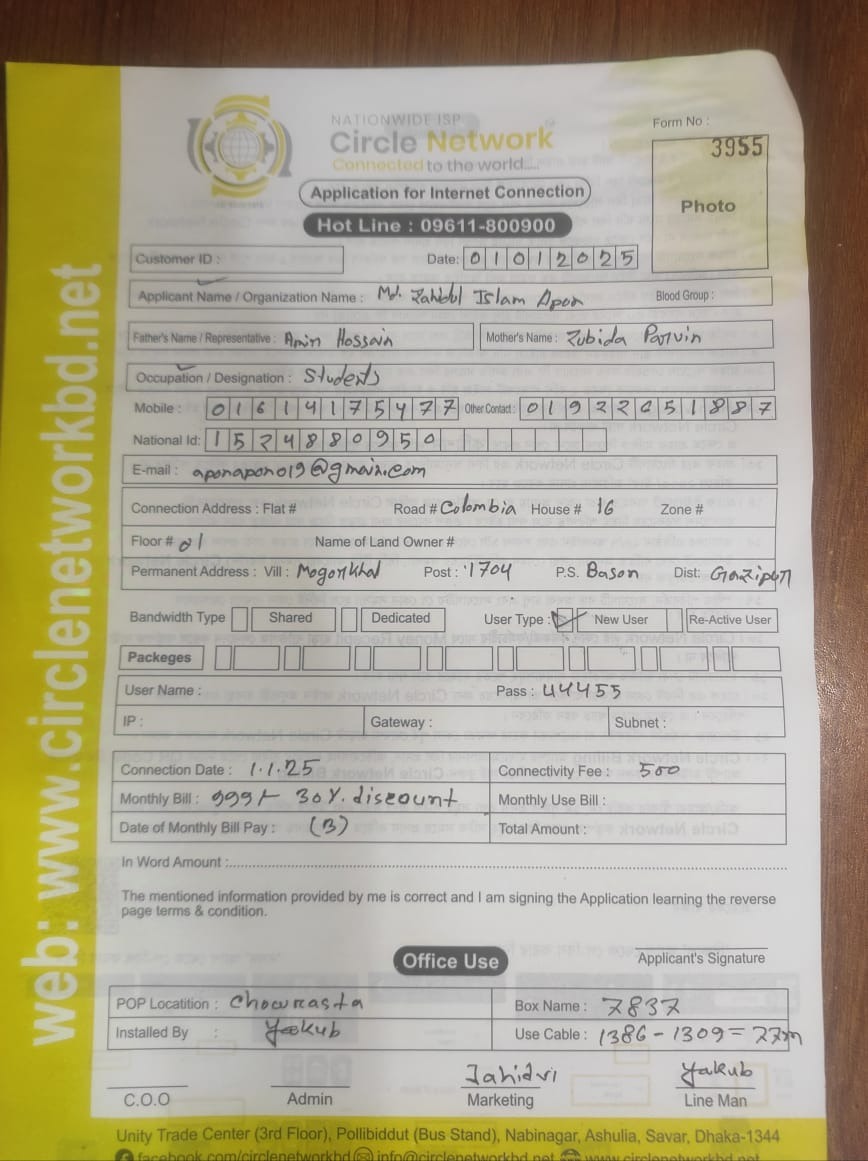 NATIONWIDE ISP
Circle Network
Connected to the world.....
Form No :
3955
Photo
Application for Internet Connection
Hot Line : 09611-800900
Customer ID :
Date: 01012025
Applicant Name / Organization Name : Md. Zahidul Islam Apon Blood Group :
Father's Name / Representative : Amin Hossain Mother's Name : Zubida Parvin
Occupation / Designation : Students
Mobile : 01614175477 Other Contact : 01922651887
National Id: 1524880950
E-mail : aponapon019@gmain.com
Connection Address : Flat # Road # Colombia House # 16 Zone #
Floor # 01 Name of Land Owner #
Permanent Address : Vill : Mogorkhal Post : 1704 P.S. Bason Dist: Gazipur
Bandwidth Type Shared Dedicated User Type : New User Re-Active User
Packeges
User Name : Pass : 44455
IP : Gateway : Subnet :
Connection Date : 1.1.25 Connectivity Fee : 500
Monthly Bill : 999/- 30%. discount Monthly Use Bill :
Date of Monthly Bill Pay : (B) Total Amount :
In Word Amount :
The mentioned information provided by me is correct and I am signing the Application learning the reverse
page terms & condition.
Office Use
Applicant's Signature
POP Locatition : Chowrasta Box Name : 7837
Installed By : Yakub Use Cable : 1386 - 1309 = 77m
Jahidvi Yakub
C.O.O Admin Marketing Line Man
Unity Trade Center (3rd Floor), Pollibiddut (Bus Stand), Nabinagar, Ashulia, Savar, Dhaka-1344
facebook.com/circlenetworkbd info@circlenetworkbd.net www.circlenetworkbd.net
web: www.circlenetworkbd.net